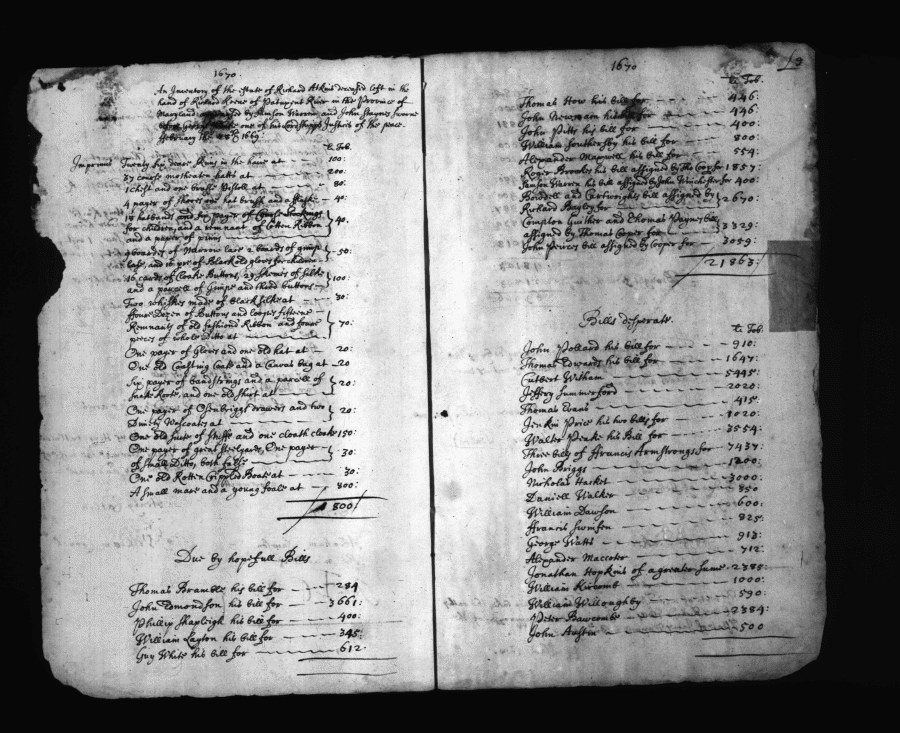 1670.
An Inventory of the estate of Richard Atkins deceased left in the
hand of Richard Keene of Patuxent River in the Province of
Maryland appraised by Samson Warren and John Haynes sworne
before one of his Lordshipps Justices of the peace.
February the 1669:
li Tob.
Imprimis Twenty six yeare Ring in the haire at 100:
37 course motheaten hatts at 200:
1 Chest and one brasse Pistoll at 80:
4 payer of shooes one hat brush and a flask 40:
18 hatbands and six payer of Course Stockings
for children, and a remnant of Cotton Ribbon 40:
and a paper of pinns
9 boards of Narrow lace 2 boards of gimpe
lace, and 10 pr of Black old gloves for children 50:
16 cards of Cloake Buttons, 29 skenes of silke
and a parcell of Gimpe and thred buttons 100:
Two whiskes made of Black silke at 30:
ffoure Dozen of Buttons and loopes fifteene
Remnants of old fashiond Ribbon and foure 70:
peeces of whole Ditto at
One payer of Gloves and one old hat at 20:
One old Coasting Coate and a Canvas bag at 20
Six payer of bandstrings and a parcell of
and one old shirt at 20:
One payer of Osenbriggs drawers and two
Dimity Wascoates at 20:
One old suite of stuffe and one cloath cloake 150:
One payer of great steelyards, One payer
of small Ditto, both false 30:
One old Rotten Crippled Boate at 30:
A small mare and a young foale at 800:
1800:
Due by hopefull Bills
Thomas Bramble his bill for 284
John Edmondson his bill for 3661:
Phillip Shapleigh his bill for 400:
William Layton his bill for 345:
Guy White his bill for 612
1670
13
li Tob.
Thomas How his bill for 446:
John Newman his bill for 446:
John Pitts his bill for 400:
William Southersby his bill for 800:
Alexander Maxwell his bill for 554:
Roger Brookes his bill assigned by Tho Cooper for 1857
Samson Warren his bill assigned by John Winchester for 400:
Bowdell and Cartwrights bill assigned by
Richard Bayly for 2670:
Compton Guither and Thomas Paynes bill
assigned by Thomas Cooper for 3329:
John Peirces bill assigned by Cooper for 3059:
21863:
Bills desperate.
li Tob.
John Pollard his bill for 910:
Thomas Edwards his bill for 1647:
Cutbert Witham 5445:
Jeffery Summerford 2020:
Thomas Evans 415:
Jenkin Price his two bills for 1020:
Walter Peake his Bill for 3554:
Three bills of Francis Armstrongs for 7437:
John Briggs 1200:
Nicholas Hacket 3000:
Daniell Walker 850
William Dawson 600:
Francis Swinfen 825:
George Watts 913:
Alexander Maccoter 712:
Jonathan Hopkins of a greater sume 2385:
William Kircomb 1000:
William Willoughby 590:
Peter Bawcombe 2384:
John Austin 500